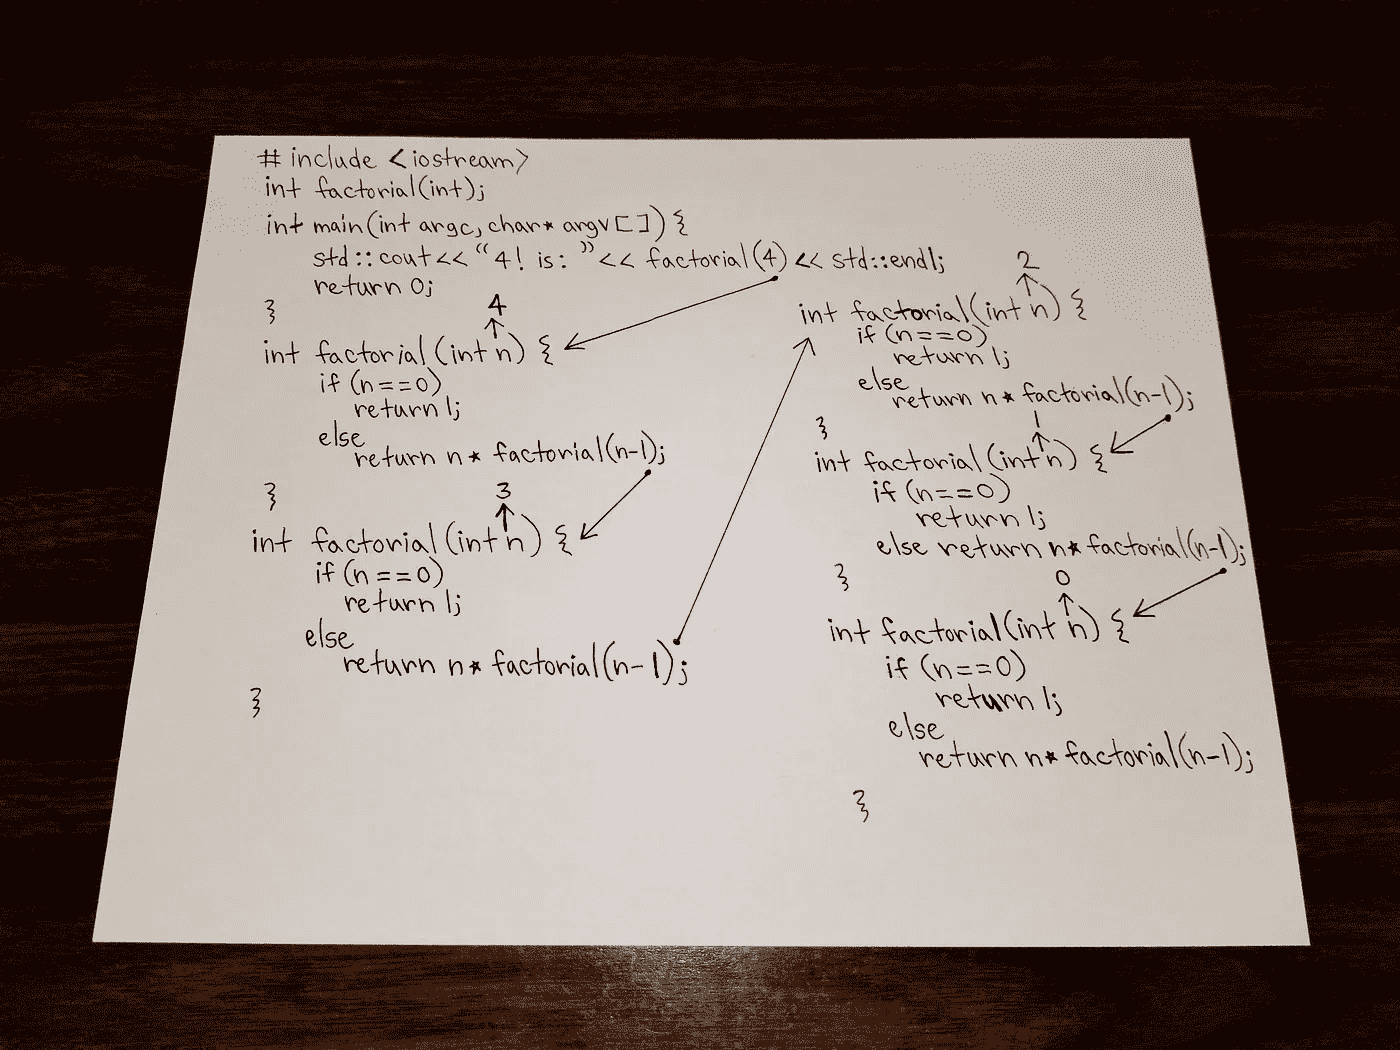 # include <iostream>
int factorial(int);
int main(int argc, char* argv[]) {
std::cout << “4! is: ” << factorial(4) << std::endl;
return 0;
}
4
int factorial (int n) {
if (n==0)
return 1;
else
return n * factorial(n-1);
}
3
int factorial (int n) {
if (n==0)
return 1;
else
return n * factorial(n-1);
}
2
int factorial(int n) {
if (n==0)
return 1;
else
return n * factorial(n-1);
}
1
int factorial (int n) {
if (n==0)
return 1;
else return n * factorial(n-1);
}
0
int factorial(int n) {
if (n==0)
return 1;
else
return n * factorial(n-1);
}